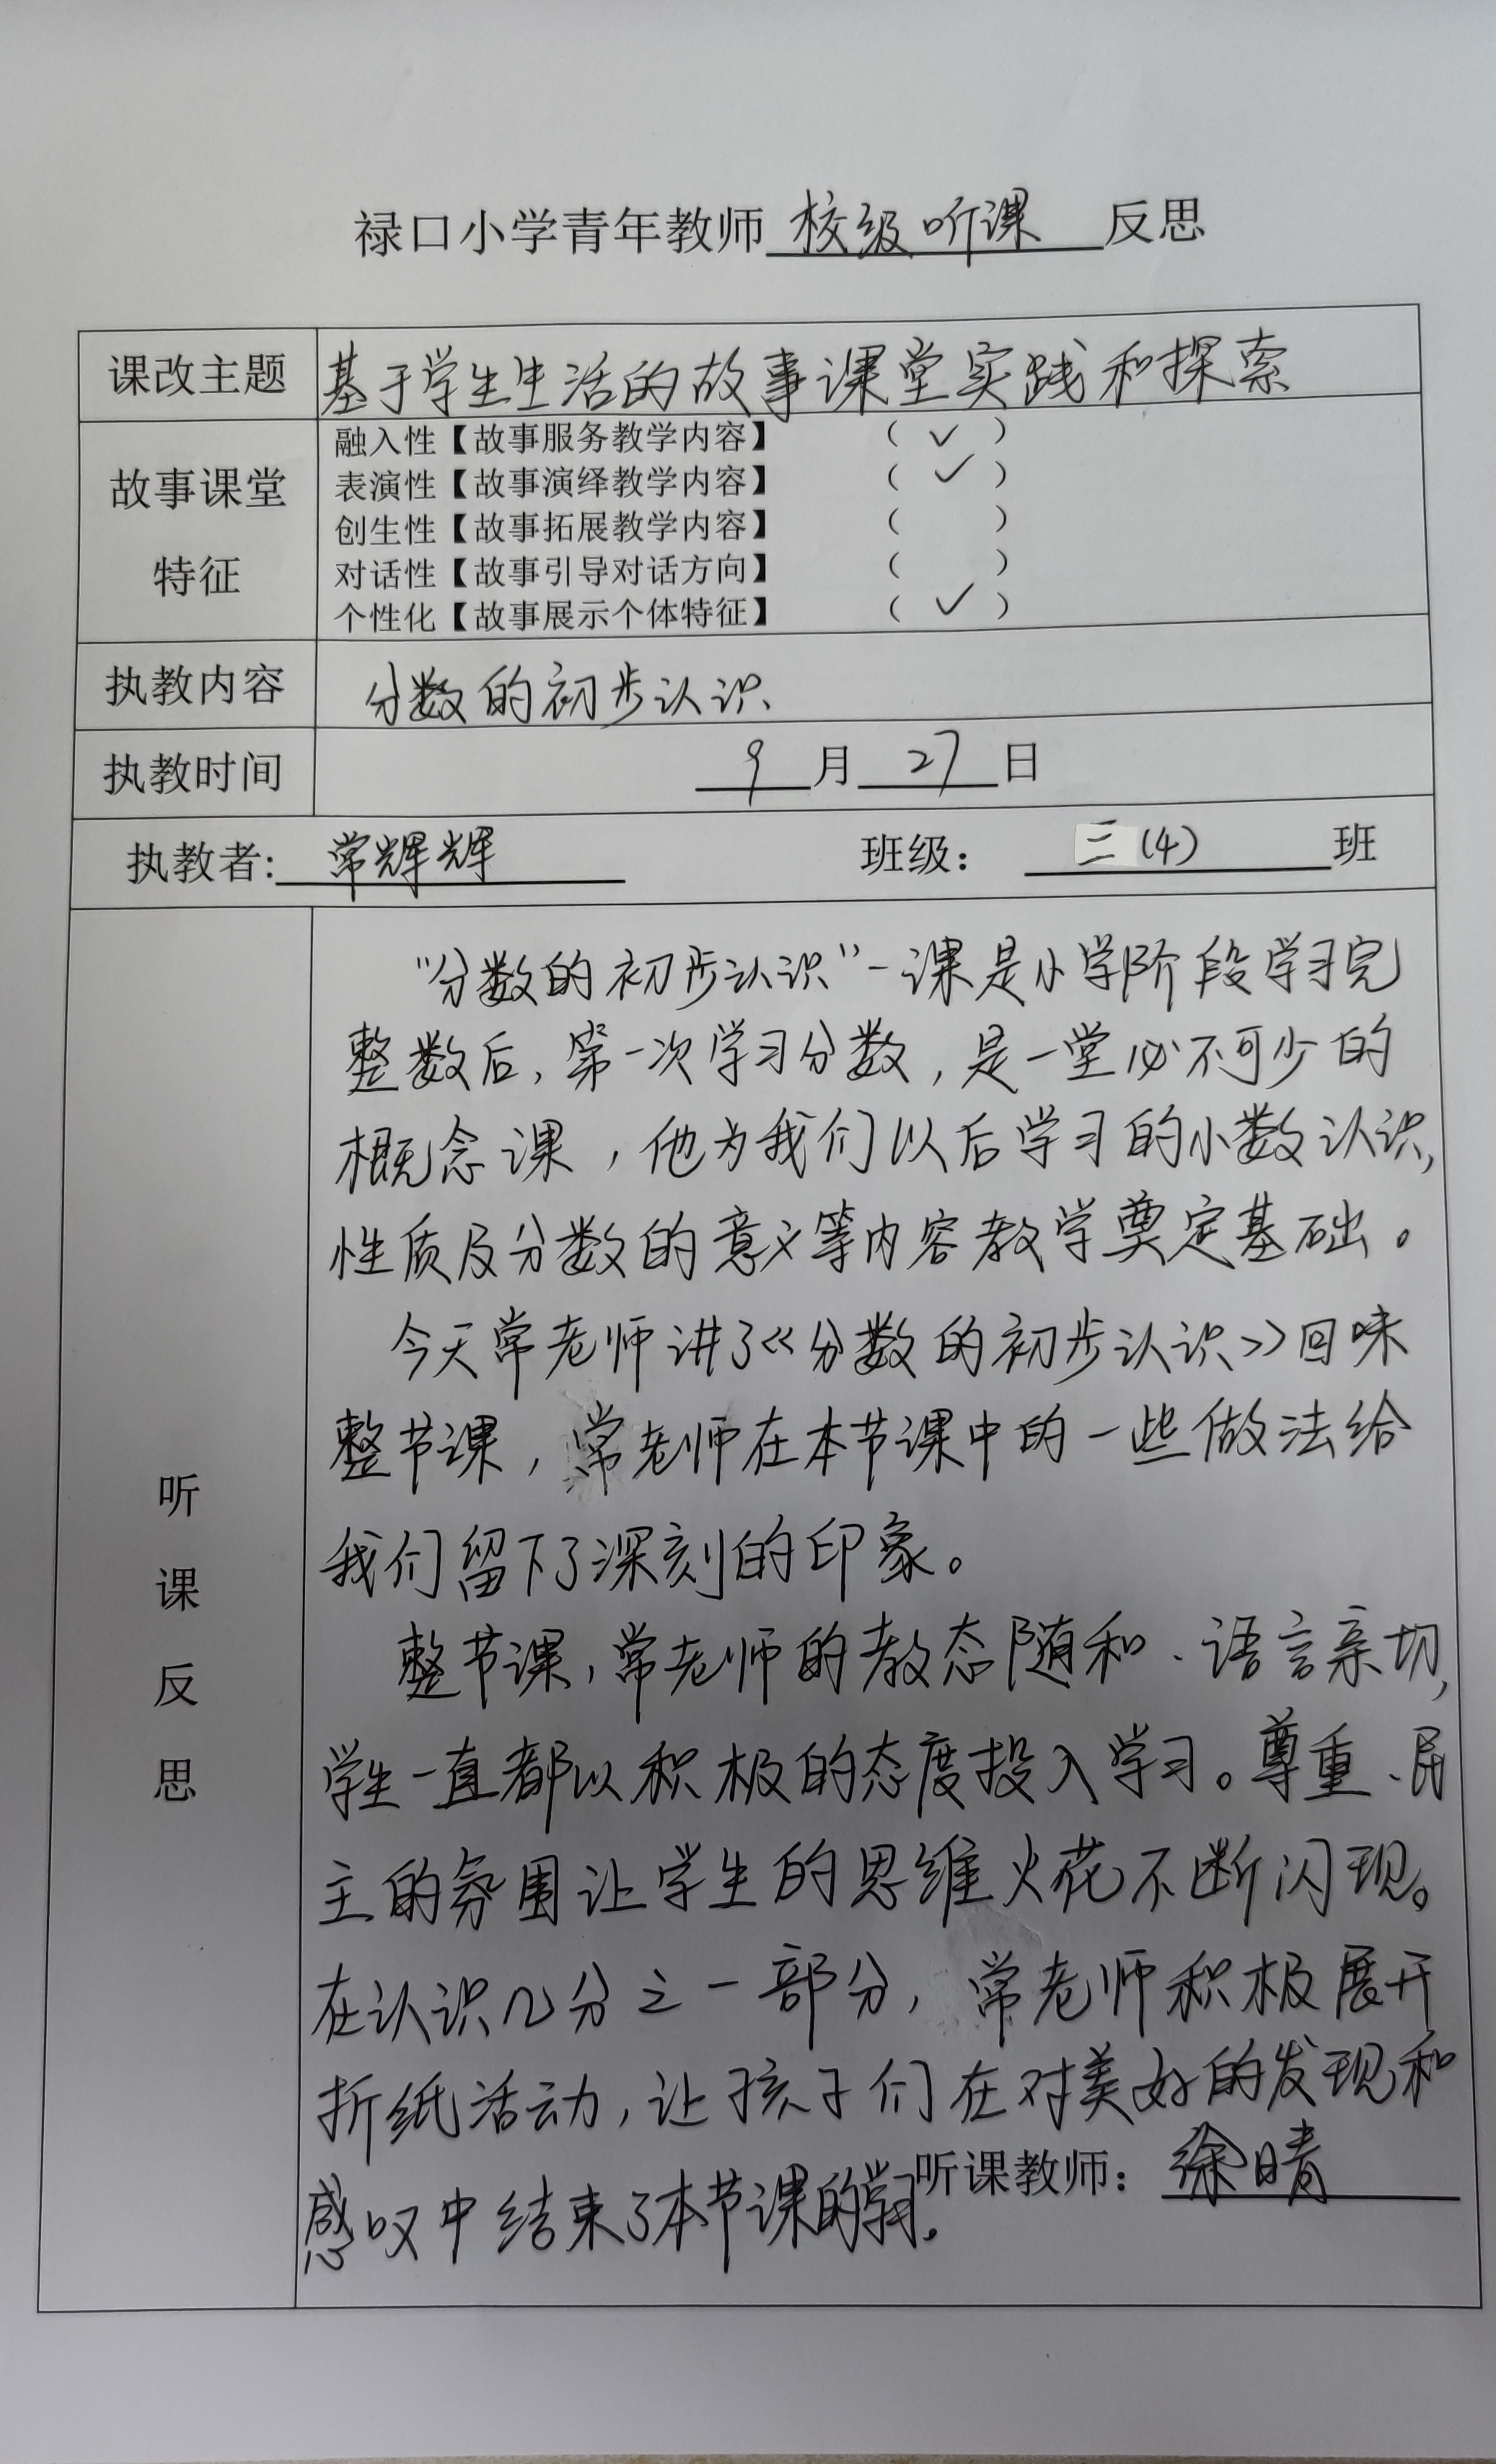 禄口小学青年教师 校级听课 反思
课改主题 基于学生生活的故事课堂实践和探索
故事课堂
特征
融入性【故事服务教学内容】 (✓)
表演性【故事演绎教学内容】 (✓)
创生性【故事拓展教学内容】 ( )
对话性【故事引导对话方向】 ( )
个性化【故事展示个体特征】 (✓)
执教内容 分数的初步认识
执教时间 9月27日
执教者: 常辉辉 班级: 三(4) 班
听
课
反
思
“分数的初步认识”一课是小学阶段学习完
整数后,第一次学习分数,是一堂必不可少的
概念课,他为我们以后学习的小数认识,
性质及分数的意义等内容教学奠定基础。
今天常老师讲了《分数的初步认识》回味
整节课,常老师在本节课中的一些做法给
我们留下了深刻的印象。
整节课,常老师的教态随和、语言亲切,
学生一直都以积极的态度投入学习。尊重、民
主的氛围让学生的思维火花不断闪现。
在认识几分之一部分,常老师积极展开
折纸活动,让孩子们在对美好的发现和
感叹中结束了本节课的学习。
听课教师: 徐晴